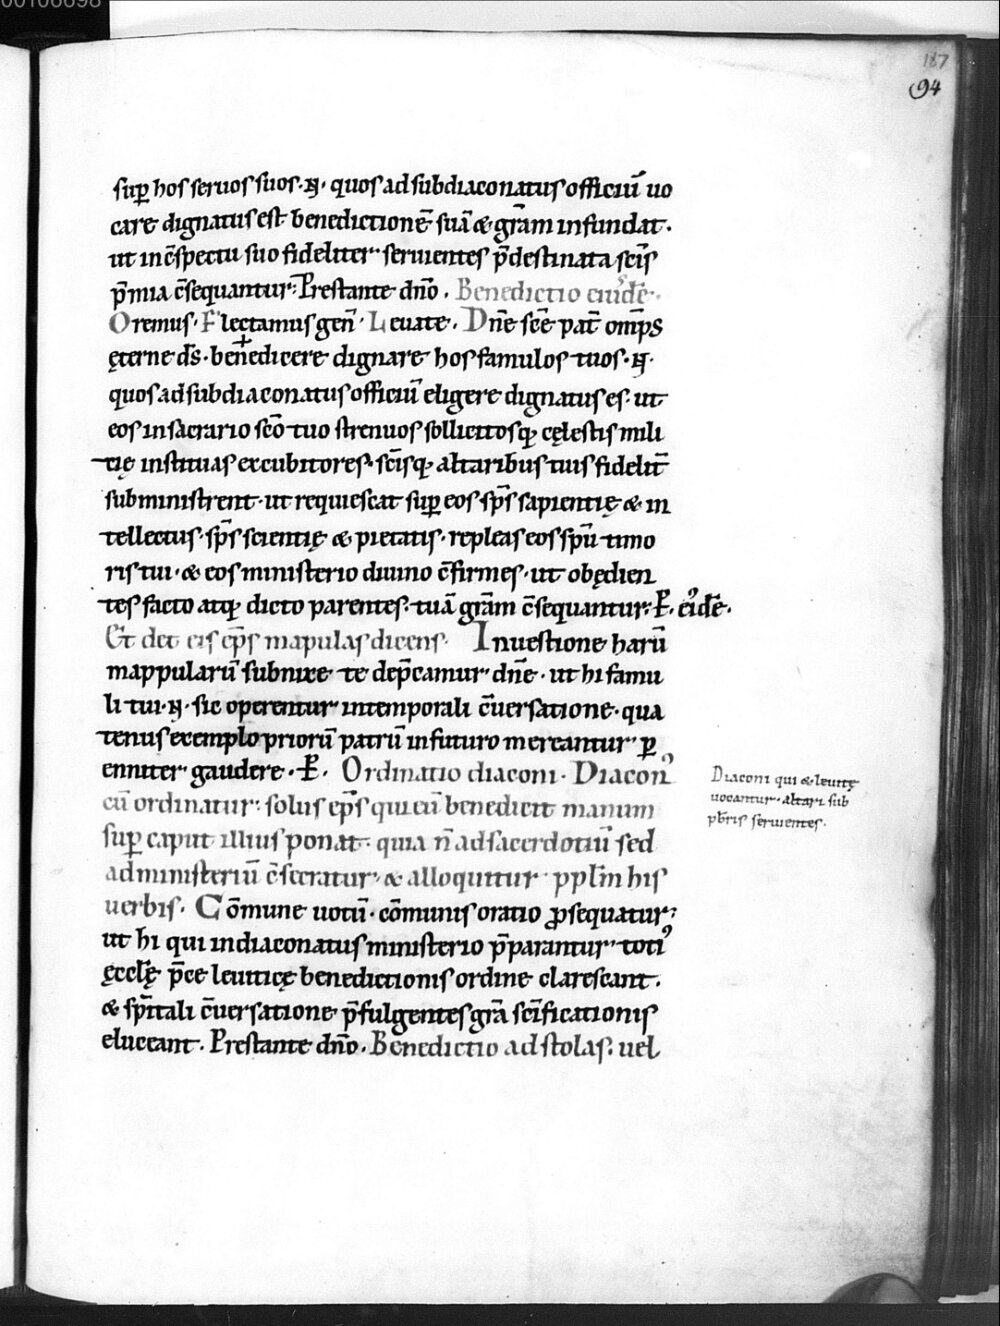 00106698
187
94
sup̲ hos seruos suos .N. quos ad subdiaconatus officiū uo
care dignatus est benedictionē suā & gr̄am infundat.
ut in c̄spectu suo fideliter seruientes p̄destinata sc̄is
p̄mia c̄sequantur. Prestante dn̄o. Benedictio eiusdē.
Oremus. Flectamus gen̄. Leuate. Dn̄e sc̄e pat̄ omp̄s
ęterne ds̄. benedicere dignare hos famulos tuos .N.
quos ad subdiaconatus officiū eligere dignatus es. ut
eos in sacrario sc̄o tuo strenuos sollicitosq; cęlestis mili
tię instituas excubitores. sc̄isq; altaribus tuis fidelit̄
subministrent. ut requiescat sup̲ eos sp̄s sapientię & in
tellectus. sp̄s scientię & pietatis. repleas eos sp̄u timo
ris tui. & eos ministerio diuino c̄firmes. ut obędien
tes facto atq; dicto parentes. tuā gr̄am c̄sequantur. P. eiꝰdē.
Et det eis ep̄s mapulas dicens. In uestione harū
mappularū subnixe te dep̄camur dn̄e. ut hi famu
li tui .N. sic operentur in temporali c̄uersatione. qua
tenus exemplo priorū patrū in futuro mereantur p̲
enniter gaudere. P. Ordinatio diaconi. Diacon̄
cū ordinatur. solus ep̄s qui eū benedicit manum
sup̲ caput illius ponat. quia n̄ ad sacerdotiū sed
ad ministeriū c̄secratur. & alloquitur ppl̄m his
uerbis. Cōmune uotū. cōmunis oratio ꝓsequatur.
ut hi qui in diaconatus ministerio p̄parantur totiꝰ
ęccl̄ę p̄ce leuiticę benedictionis ordine clarescant.
& sp̄itali c̄uersatione p̄fulgentes gr̄a sc̄ificationis
eluceant. Prestante dn̄o. Benedictio ad stolas. uel
Diaconi qui & leuitę
uocantur. altari sub
pb̄ris seruientes.